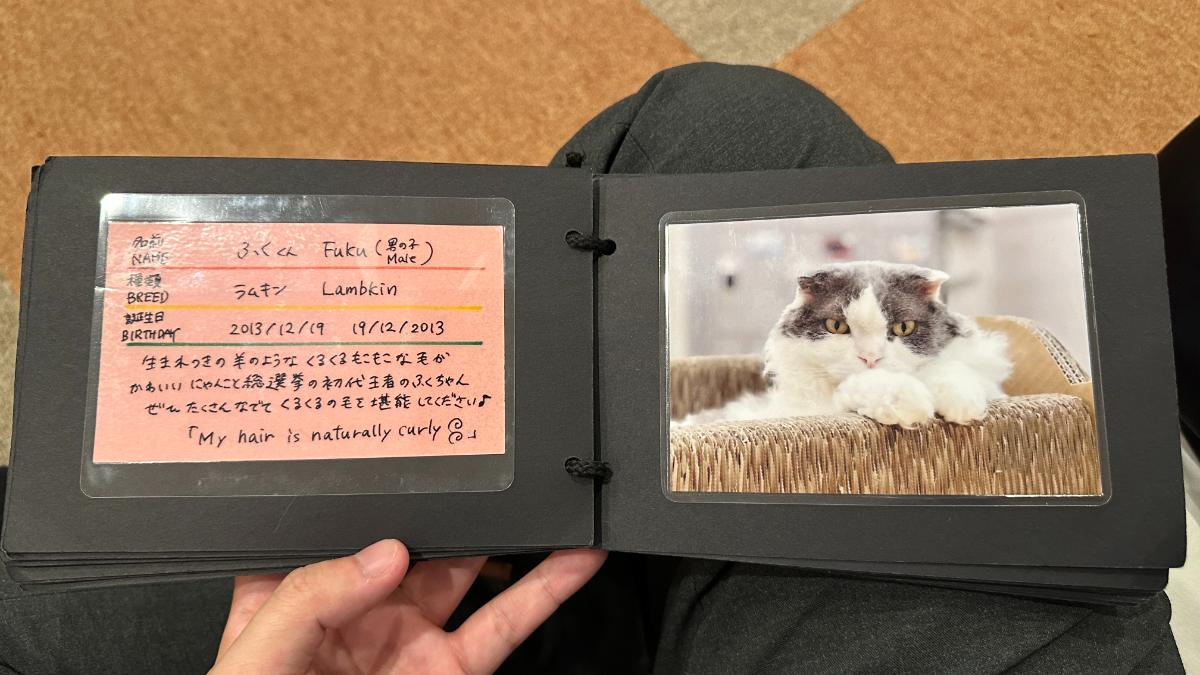 名前 ふくくん Fuku (男の子
NAME Male)
種類 ラムキン Lambkin
BREED
誕生日 2013/12/19 19/12/2013
BIRTHDAY
生まれつきの羊のようなくるくるもこもこな毛が
かわいい にゃんこ総選挙の初代王者のふくちゃん
ぜひ たくさんなでて くるくるの毛を堪能してください♪
「My hair is naturally curly」